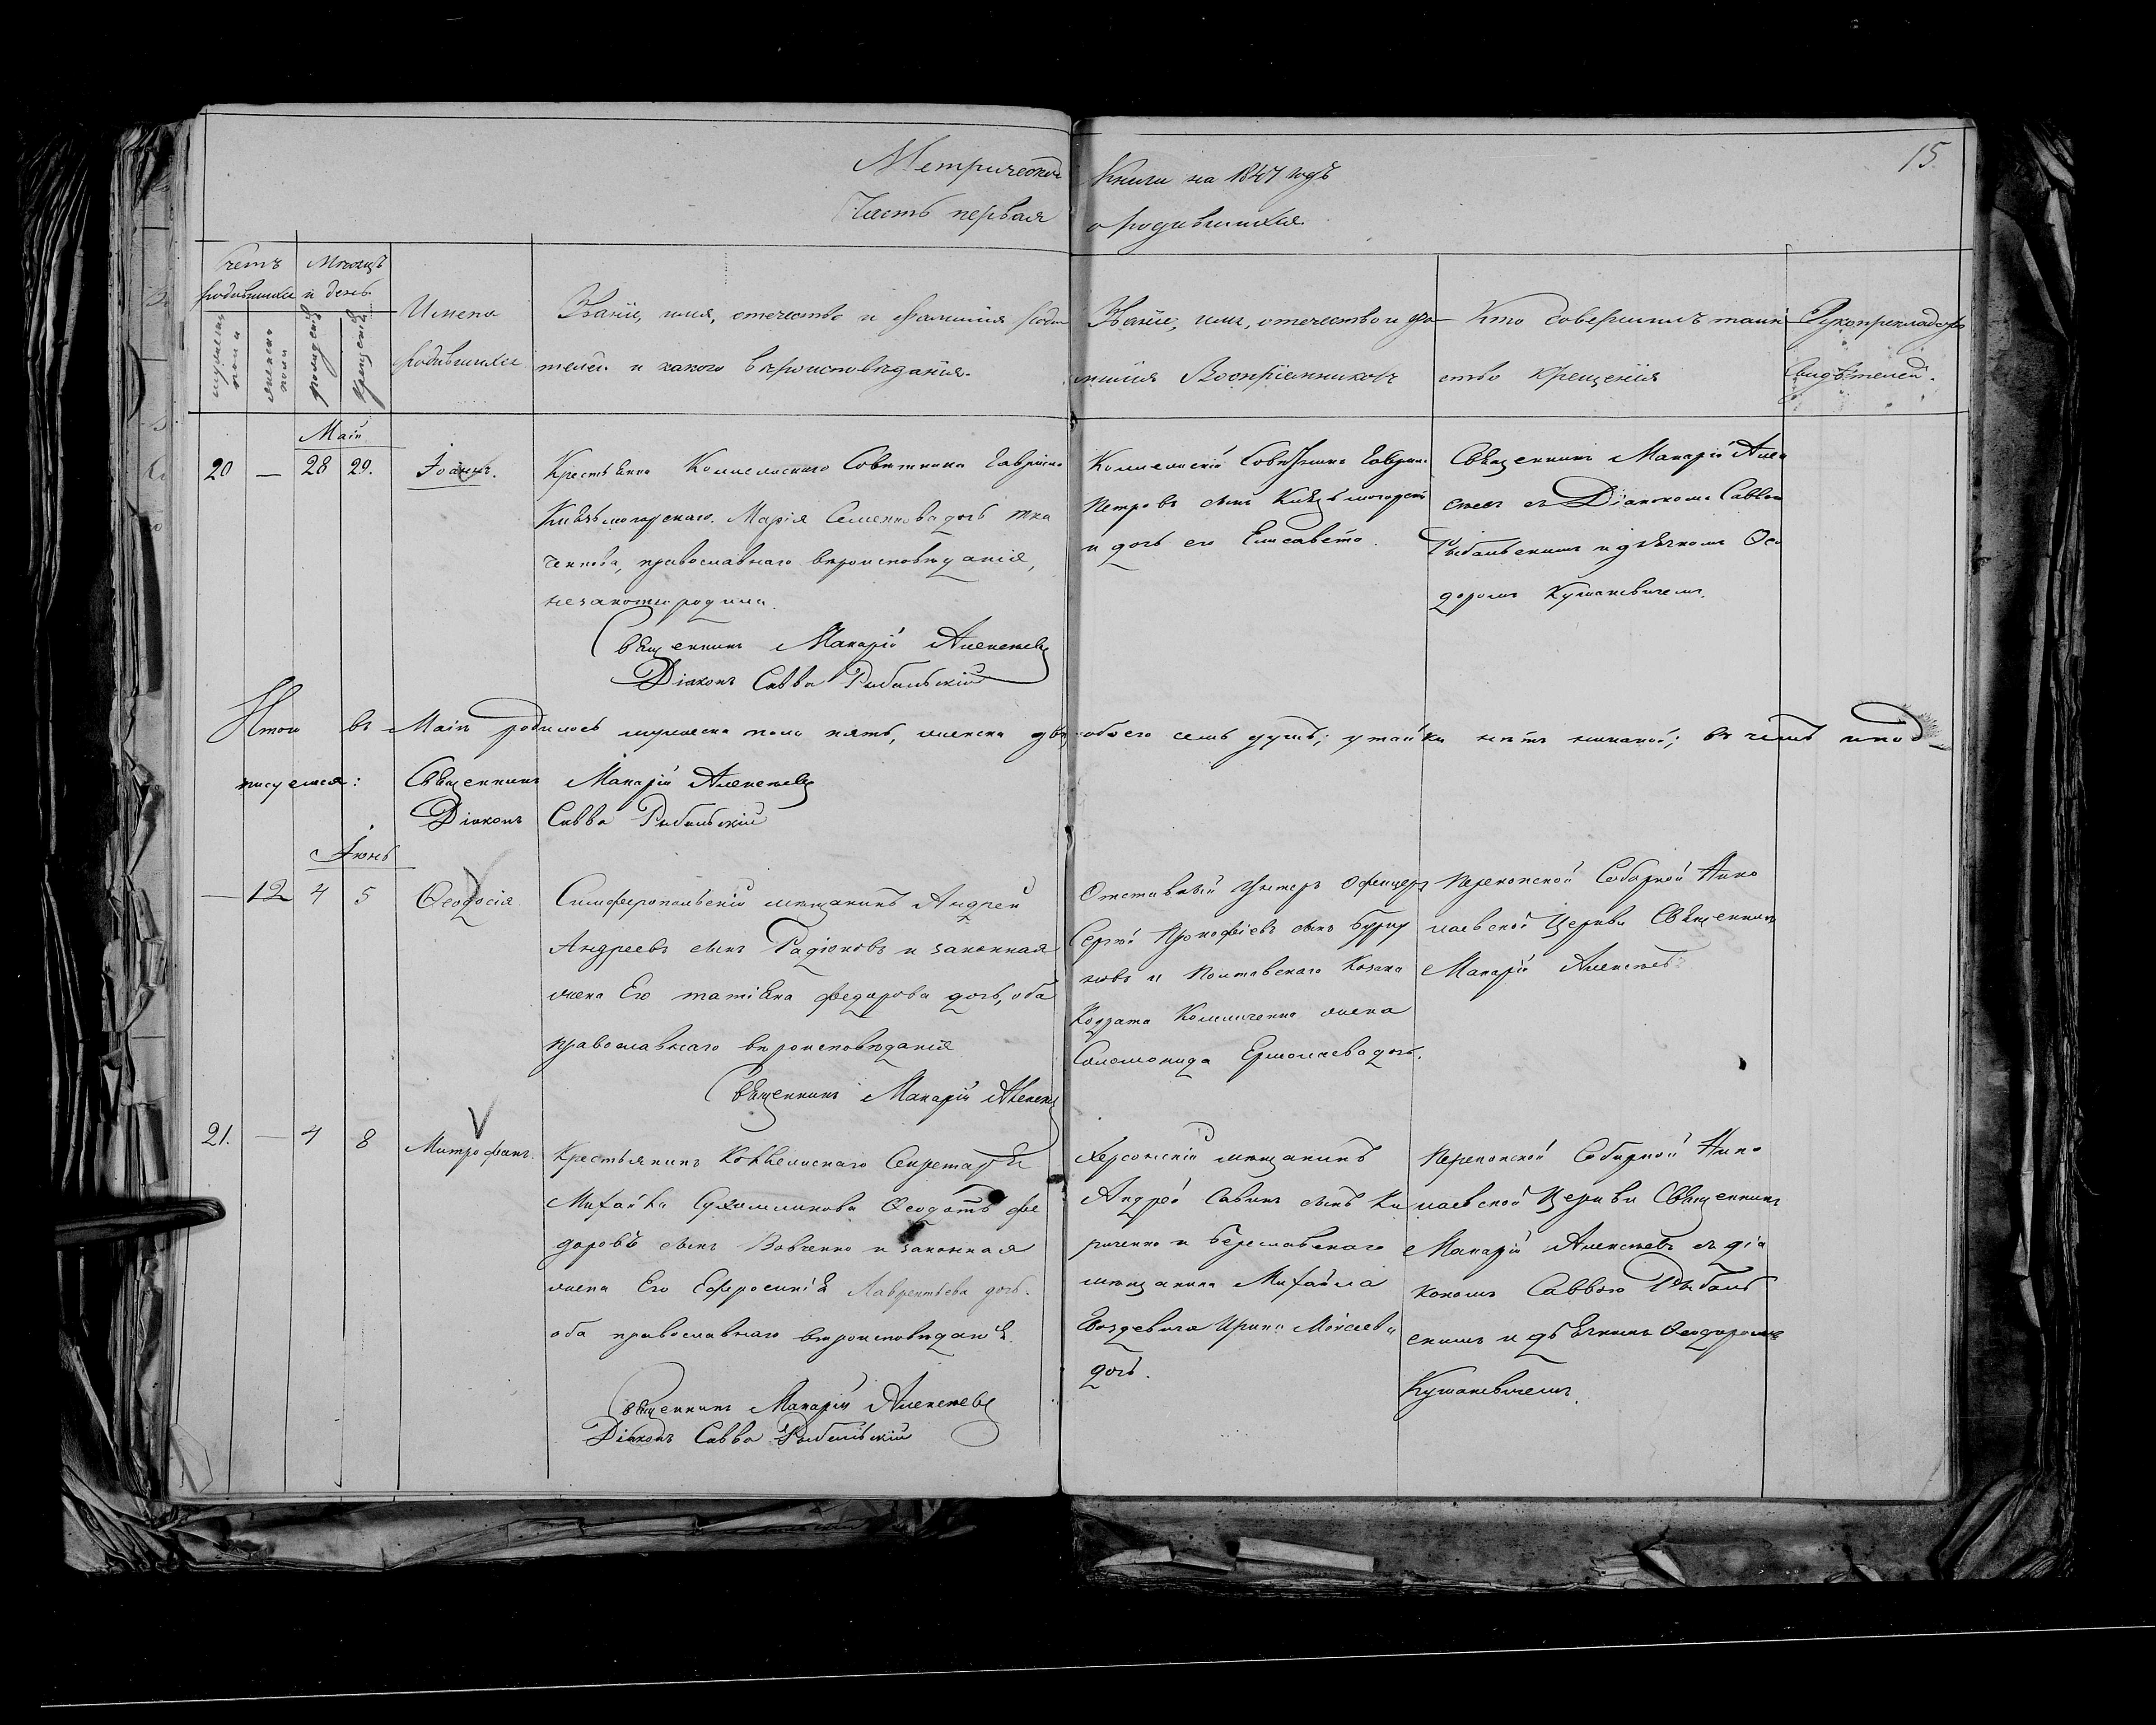 15
Метрической Книги на 1847 годъ
Часть первая о родившихся
Счетъ родившихся
Мѣсяцъ и день
мужеска пола
женска пола
рожденія
крещенія
Имена родившихся
Званіе, имя, отечество и фамилія роди
телей и какого вѣроисповѣданія.
Званіе, имя, отечество и фа
милія Воспріемниковъ
Кто совершилъ таин
ство крещенія
Рукоприкладство
свидѣтелей.
Маій
20 — 28 29. Іоаннъ.
Крестьянка Коллежскаго Совѣтника Гавріила
Марія Семенова дочь тка
ченкова, православнаго вѣроисповѣданія,
незаконнородила.
Священникъ Макарій Алексѣевъ
Діаконъ Савва Рыбальскій
Коллежскій Совѣтникъ Гавріилъ
Петровъ сынъ
и дочь его Елисавета.
Священникъ Макарій Алек
сѣевъ съ Діакономъ Саввою
Рыбальскимъ и дьячкомъ Ѳео
доромъ Кушакевичемъ.
Итого въ Маіѣ родилось мужеска пола пять, женска два обоего семь душъ; утайки нѣтъ никакой; въ чемъ и под-
писуемся: Священникъ Макарій Алексѣевъ
Діаконъ Савва Рыбальскій
Іюнь
— 12 4 5 Ѳеодосія
Симферопольскій мѣщанинъ Андрей
Андреевъ сынъ Радіоновъ и законная
жена Его Татіана Федорова дочь, оба
православнаго вѣроисповѣданія
Священникъ Макарій Алексѣевъ
Отставный Унтеръ Офицеръ
Сергій Прокофіевъ сынъ
и Полтавскаго Козака
Кодрата жена
Соломонида Ермолаева дочь.
Перекопской Соборной Нико
лаевской Церкви Священникъ
Макарій Алексѣевъ
21. — 4 8 Митрофанъ.
Крестьянинъ Коллежскаго Секретаря
Михаила Сухомлинова Ѳеодотъ Фе
доровъ сынъ Вовченко и законная
жена Его Ефросинія Лаврентьева дочь.
оба православнаго вѣроисповѣданія.
Священникъ Макарій Алексѣевъ
Діаконъ Савва Рыбальскій
Херсонскій мѣщанинъ
Андрей Савинъ сынъ Ки
риченко и Бериславскаго
мѣщанина Михайла
Ирина Моисеева
дочь.
Перекопской Соборной Нико
лаевской Церкви Священникъ
Макарій Алексѣевъ съ діа
кономъ Саввою Рыбаль
скимъ и дьячкомъ Ѳеодоромъ
Кушакевичемъ.